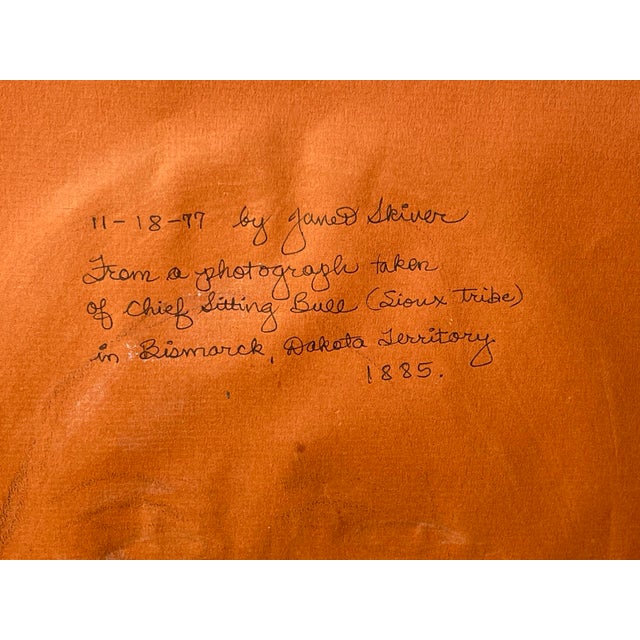 11-18-77 by Janet Skiver
From a photograph taken
of Chief Sitting Bull (Sioux Tribe)
in Bismarck, Dakota Territory
1885.